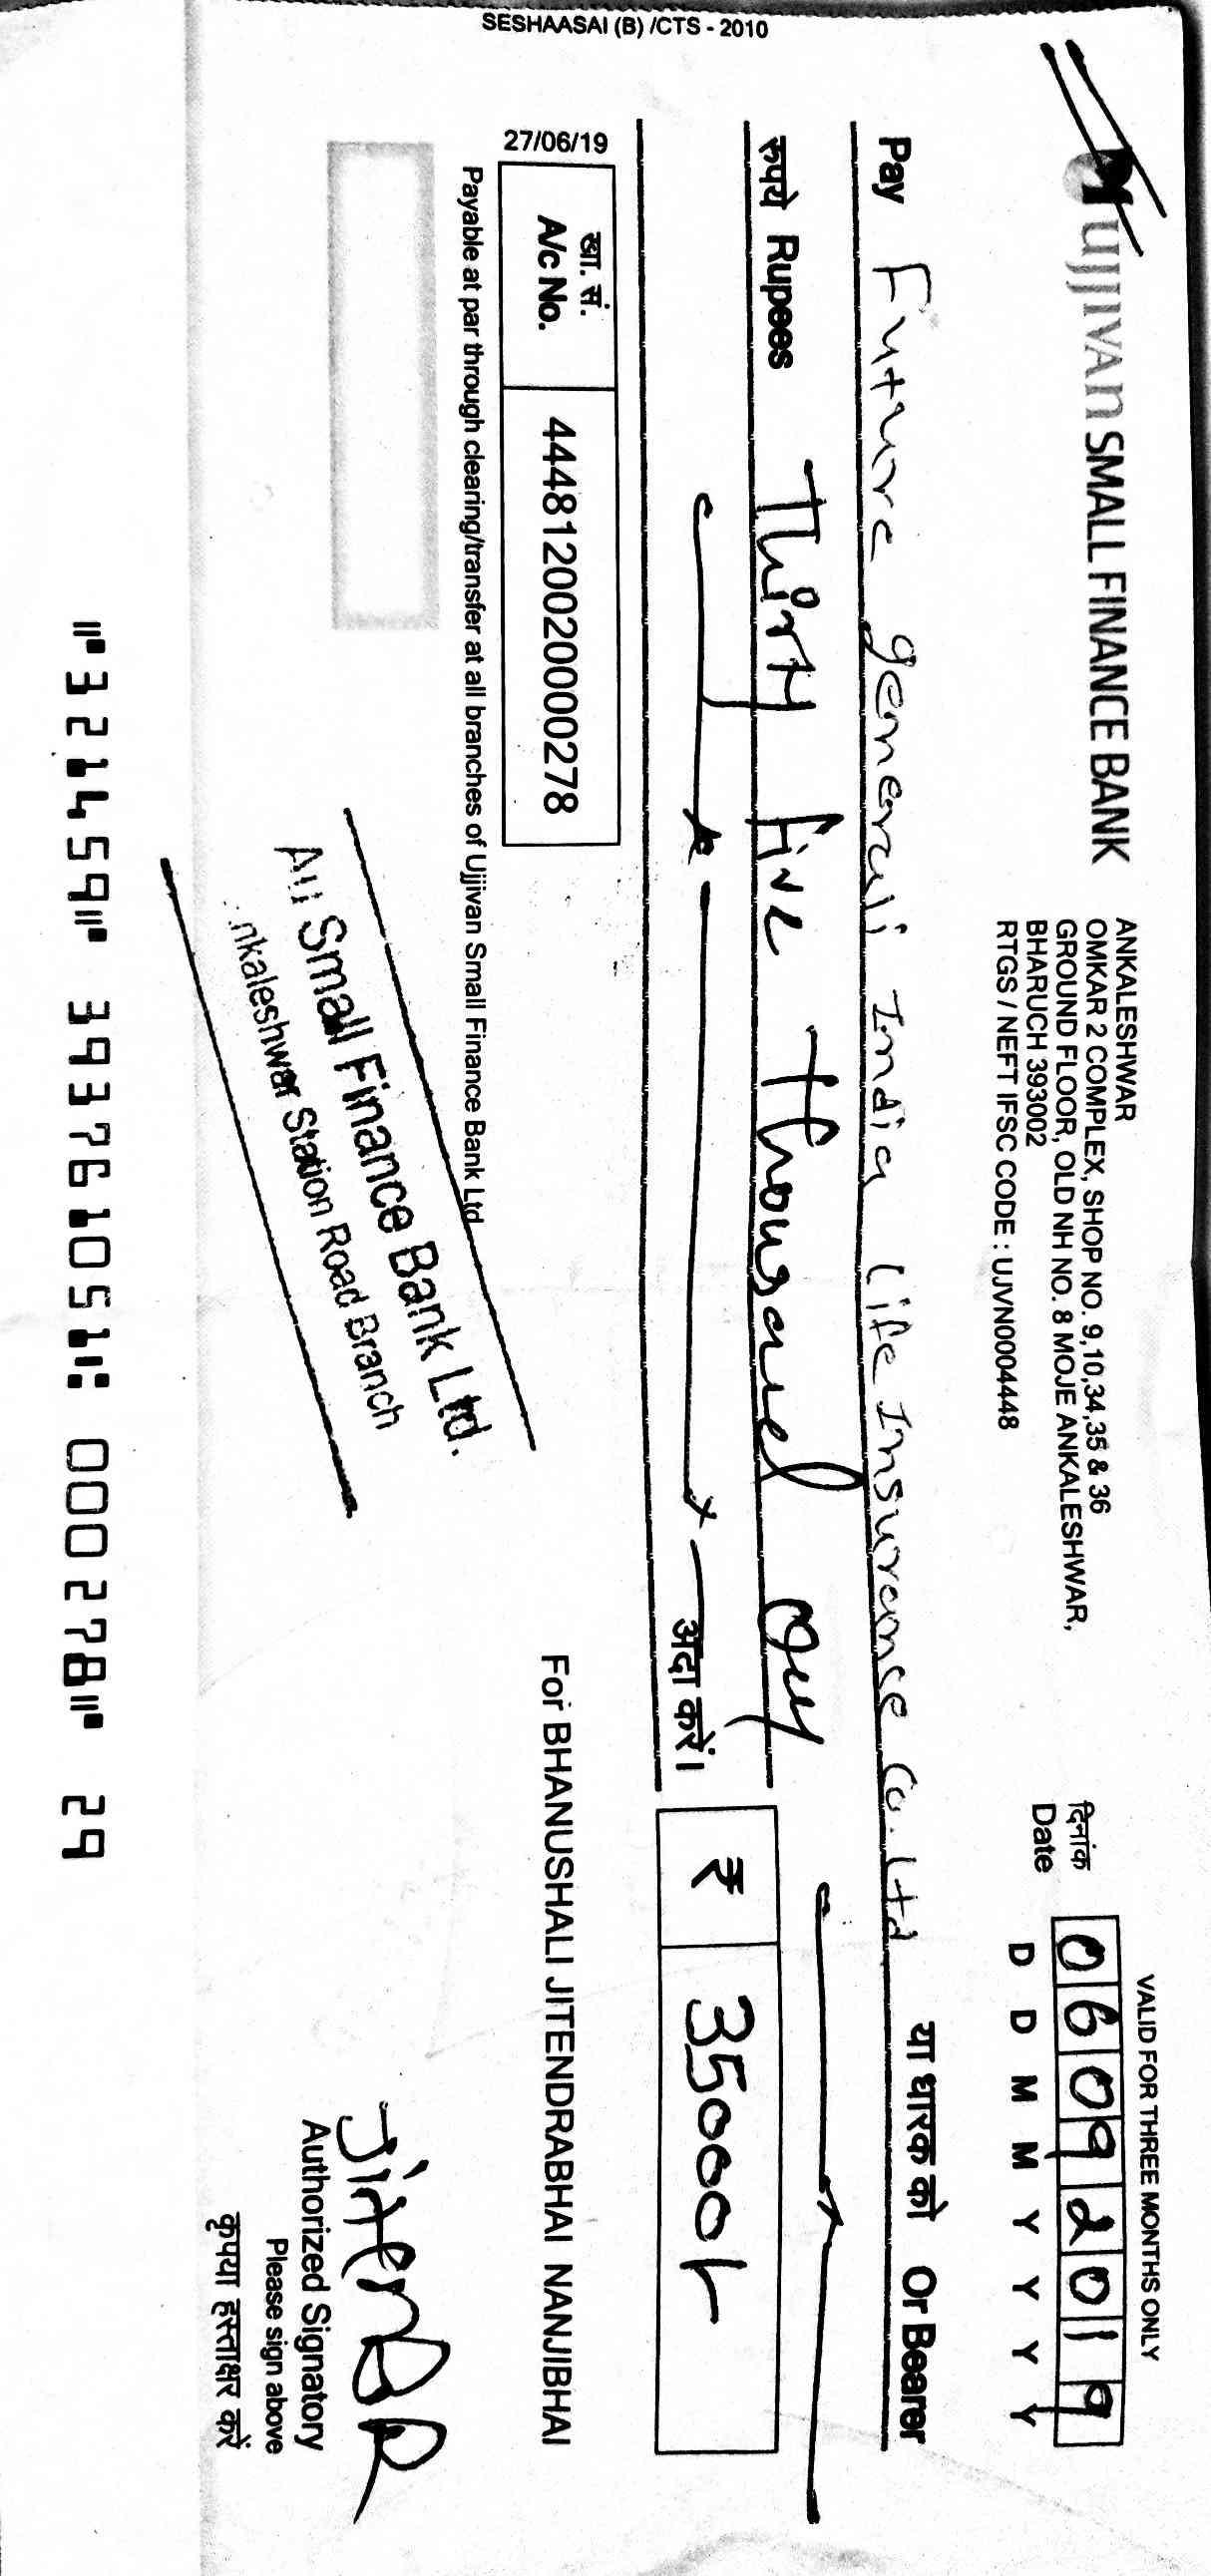 ujjivan SMALL FINANCE BANK
ANKALESHWAR
OMKAR 2 COMPLEX, SHOP NO. 9,10,34,35 & 36
GROUND FLOOR, OLD NH NO. 8 MOJE ANKALESHWAR,
BHARUCH 393002
RTGS / NEFT IFSC CODE : UJVN0004448
VALID FOR THREE MONTHS ONLY
दिनांक
Date
06092019
D D M M Y Y Y Y
Pay Future generali India Life Insurance Co. Ltd या धारक को Or Bearer
रुपये Rupees Thirty five thousand only
अदा करें।
₹ 35000/-
27/06/19
खा. सं.
A/c No.
4448120020000278
Payable at par through clearing/transfer at all branches of Ujjivan Small Finance Bank Ltd
For BHANUSHALI JITENDRABHAI NANJIBHAI
Au Small Finance Bank Ltd.
nkaleshwar Station Road Branch
Authorized Signatory
Please sign above
कृपया हस्ताक्षर करें
SESHAASAI (B) /CTS - 2010
⑈321459⑈ 393761051⑆ 000278⑈ 29